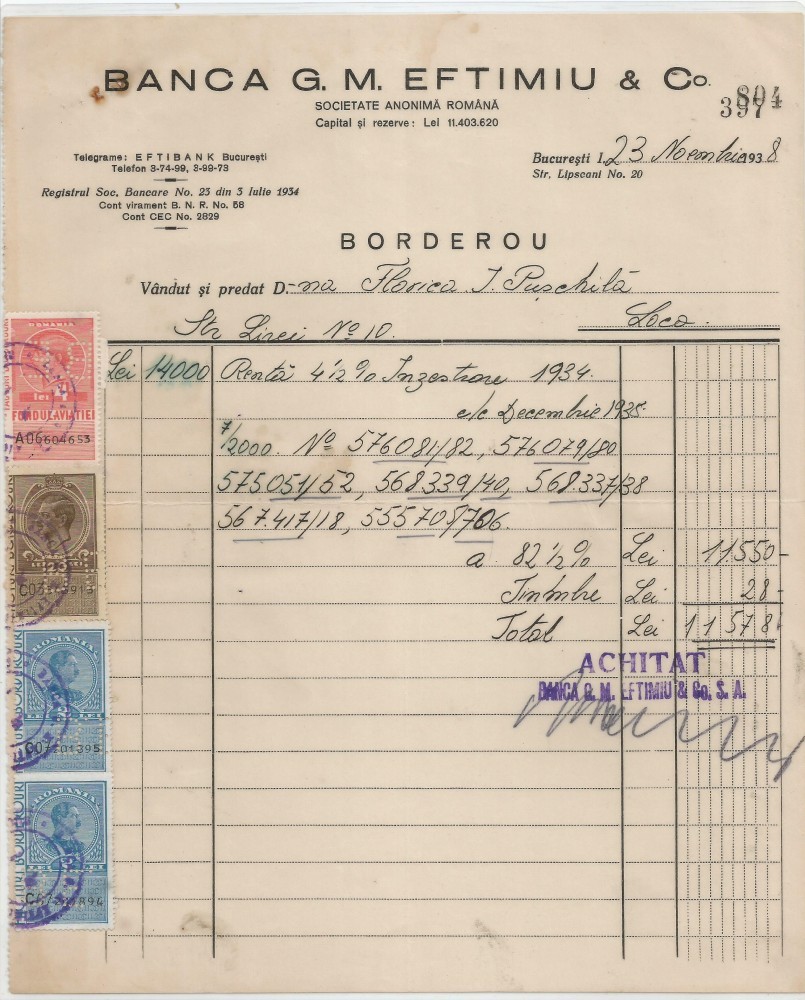 BANCA G. M. EFTIMIU & Co.
SOCIETATE ANONIMĂ ROMÂNĂ
Capital și rezerve: Lei 11.403.620
804
397
Telegrame: EFTIBANK București
Telefon 3-74-99, 3-99-73
Registrul Soc. Bancare No. 23 din 3 Iulie 1934
Cont virament B. N. R. No. 58
Cont CEC No. 2829
București I, 23 Noembrie 1938
Str. Lipscani No. 20
BORDEROU
Vândut și predat D-na Florica I. Pușchilă
Str Lirei No 10. Loco.
Lei 14000 Rentă 4 1/2 % Inzestrare 1934.
c/c Decembrie 1935.
7/2000. No 576081/82, 576079/80
575051/52, 568339/40, 568.337/38
567.417/18, 555705/706.
a 82 1/2 % Lei 11.550-
Timbre Lei 28-
Total Lei 11578-
ACHITAT
BANCA G. M. EFTIMIU & Co. S. A.
ROMANIA
lei 4
FONDUL AVIAȚIEI
A06604653
ROMANIA
ROMANIA